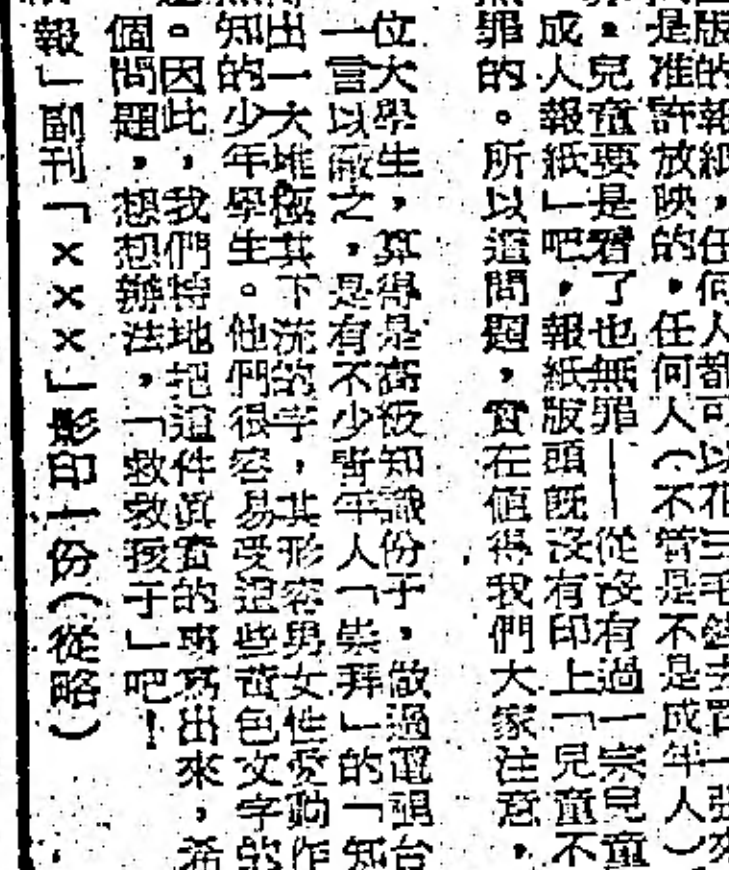 版的報紙，任何人都可以花三毛錢去買一張來
是准許放映的，任何人（不管是不是成年人）
。兒童要是看了也無罪——從沒有過一宗兒童
成人報紙」吧，報紙版頭既沒有印上「兒童不
罪的。所以這問題，實在值得我們大家注意，
位大學生，算得是高級知識份子，做過電視台
一言以蔽之，是有不少青年人「崇拜」的「知
出一大堆極其下流的字，其形容男女性愛動作
知的少年學生。他們很容易受這些黃色文字的
。因此，我們特地把這件真實的事寫出來，希
個問題，想想辦法，「救救孩子」吧！
報」副刊「×××」影印一份（從略）